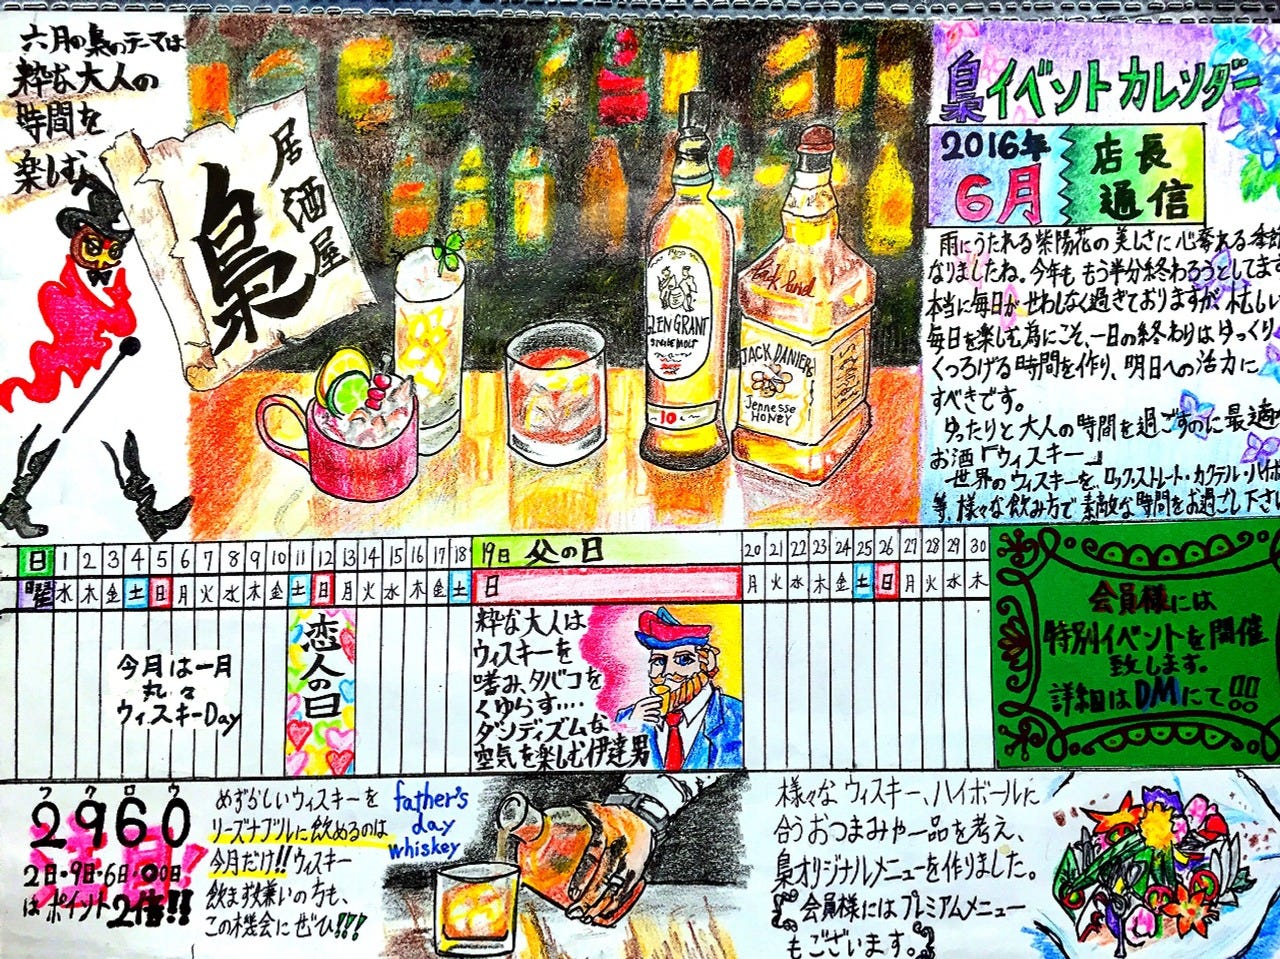 六月の梟のテーマは
粋な大人の
時間を
楽しむ
居酒屋
梟
GLEN GRANT
SINGLE MALT
10
JACK DANIEL'S
Jennesse
HONEY
梟イベントカレンダー
2016年
6月
店長
通信
雨にうたれる紫陽花の美しさに心奪える季節
なりましたね。今年ももう半分終わろうとしてます
本当に毎日がせわしなく過ぎておりますが、忙しい
毎日を楽しむ為にこそ、一日の終わりはゆっくり
くつろげる時間を作り、明日への活力に
すべきです。
ゆったりと大人の時間を過ごすのに最適
お酒『ウィスキー』
世界のウィスキーを、ロック・ストレート・カクテル・ハイボ
等、様々な飲み方で素敵な時間をお過ごし下さい
日 1 2 3 4 5 6 7 8 9 10 11 12 13 14 15 16 17 18 19日 父の日 20 21 22 23 24 25 26 27 28 29 30
曜 水 木 金 土 日 月 火 水 木 金 土 日 月 火 水 木 金 土 日 月 火 水 木 金 土 日 月 火 水 木
今月は一月
丸々
ウィスキーDay
恋人の日
粋な大人は
ウィスキーを
嗜み、タバコを
くゆらす‥‥
ダンディズムな
空気を楽しむ伊達男
会員様には
特別イベントを開催
致します。
詳細はDMにて!!
フクロウ
2960
2日・9日・6日・00日
は ポイント2倍!!
めずらしいウィスキーを
リーズナブルに飲めるのは
今月だけ!!ウィスキー
飲まず嫌いの方も、
この機会にぜひ!!!
father's
day
whiskey
様々なウィスキー、ハイボールに
合うおつまみや一品を考え、
梟オリジナルメニューを作りました。
会員様にはプレミアムメニュー
もございます。